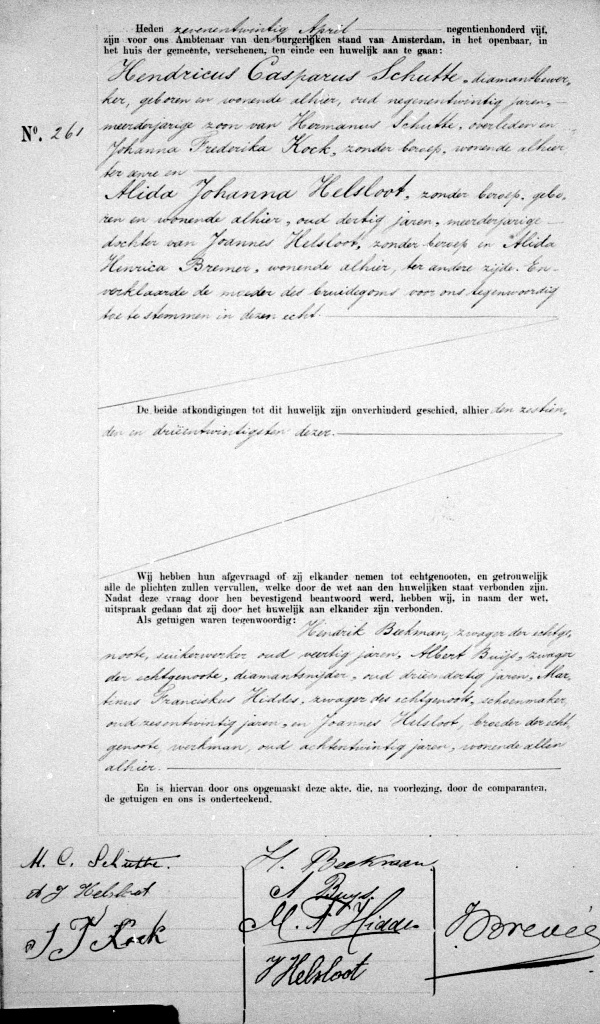 Heden zevenentwintig April negentienhonderd vijf,
zijn voor ons Ambtenaar van den burgerlijken stand van Amsterdam, in het openbaar, in
het huis der gemeente, verschenen, ten einde een huwelijk aan te gaan:
Hendricus Casparus Schutte, diamantbewer-
ker, geboren en wonende alhier, oud negenentwintig jaren,
No. 261 meerderjarige zoon van Hermanus Schutte, overleden en
Johanna Frederika Kock, zonder beroep, wonende alhier
ter eenre en
Alida Johanna Helsloot, zonder beroep, gebo-
ren en wonende alhier, oud dertig jaren, meerderjarige
dochter van Joannes Helsloot, zonder beroep en Alida
Henrica Bremer, wonende alhier, ter andere zijde. En
verklaarde de moeder des bruidegoms voor ons tegenwoordig
toe te stemmen in dezen echt.
De beide afkondigingen tot dit huwelijk zijn onverhinderd geschied, alhier den zestien,
den en drieëntwintigsten dezer.
Wij hebben hun afgevraagd of zij elkander nemen tot echtgenooten, en getrouwelijk
alle de plichten zullen vervullen, welke door de wet aan den huwelijken staat verbonden zijn.
Nadat deze vraag door hen bevestigend beantwoord werd, hebben wij, in naam der wet,
uitspraak gedaan dat zij door het huwelijk aan elkander zijn verbonden.
Als getuigen waren tegenwoordig:
Hendrik Beekman, zwager der echtge-
noote, suikerwerker oud veertig jaren, Albert Buijs, zwager
der echtgenoote, diamantsnijder, oud drieendertig jaren, Mar-
tinus Franciskus Hiddes, zwager des echtgenoots, schoenmaker
oud zesentwintig jaren, en Joannes Helsloot, broeder der echt
genoote, werkman, oud achtentwintig jaren, wonende allen
alhier.
En is hiervan door ons opgemaakt deze akte, die, na voorlezing, door de comparanten,
de getuigen en ons is onderteekend.
H. C. Schutte.
A J Helsloot
J F Kock
H. Beekman
A Buys.
M. F Hiddes
J Helsloot
J Brevée